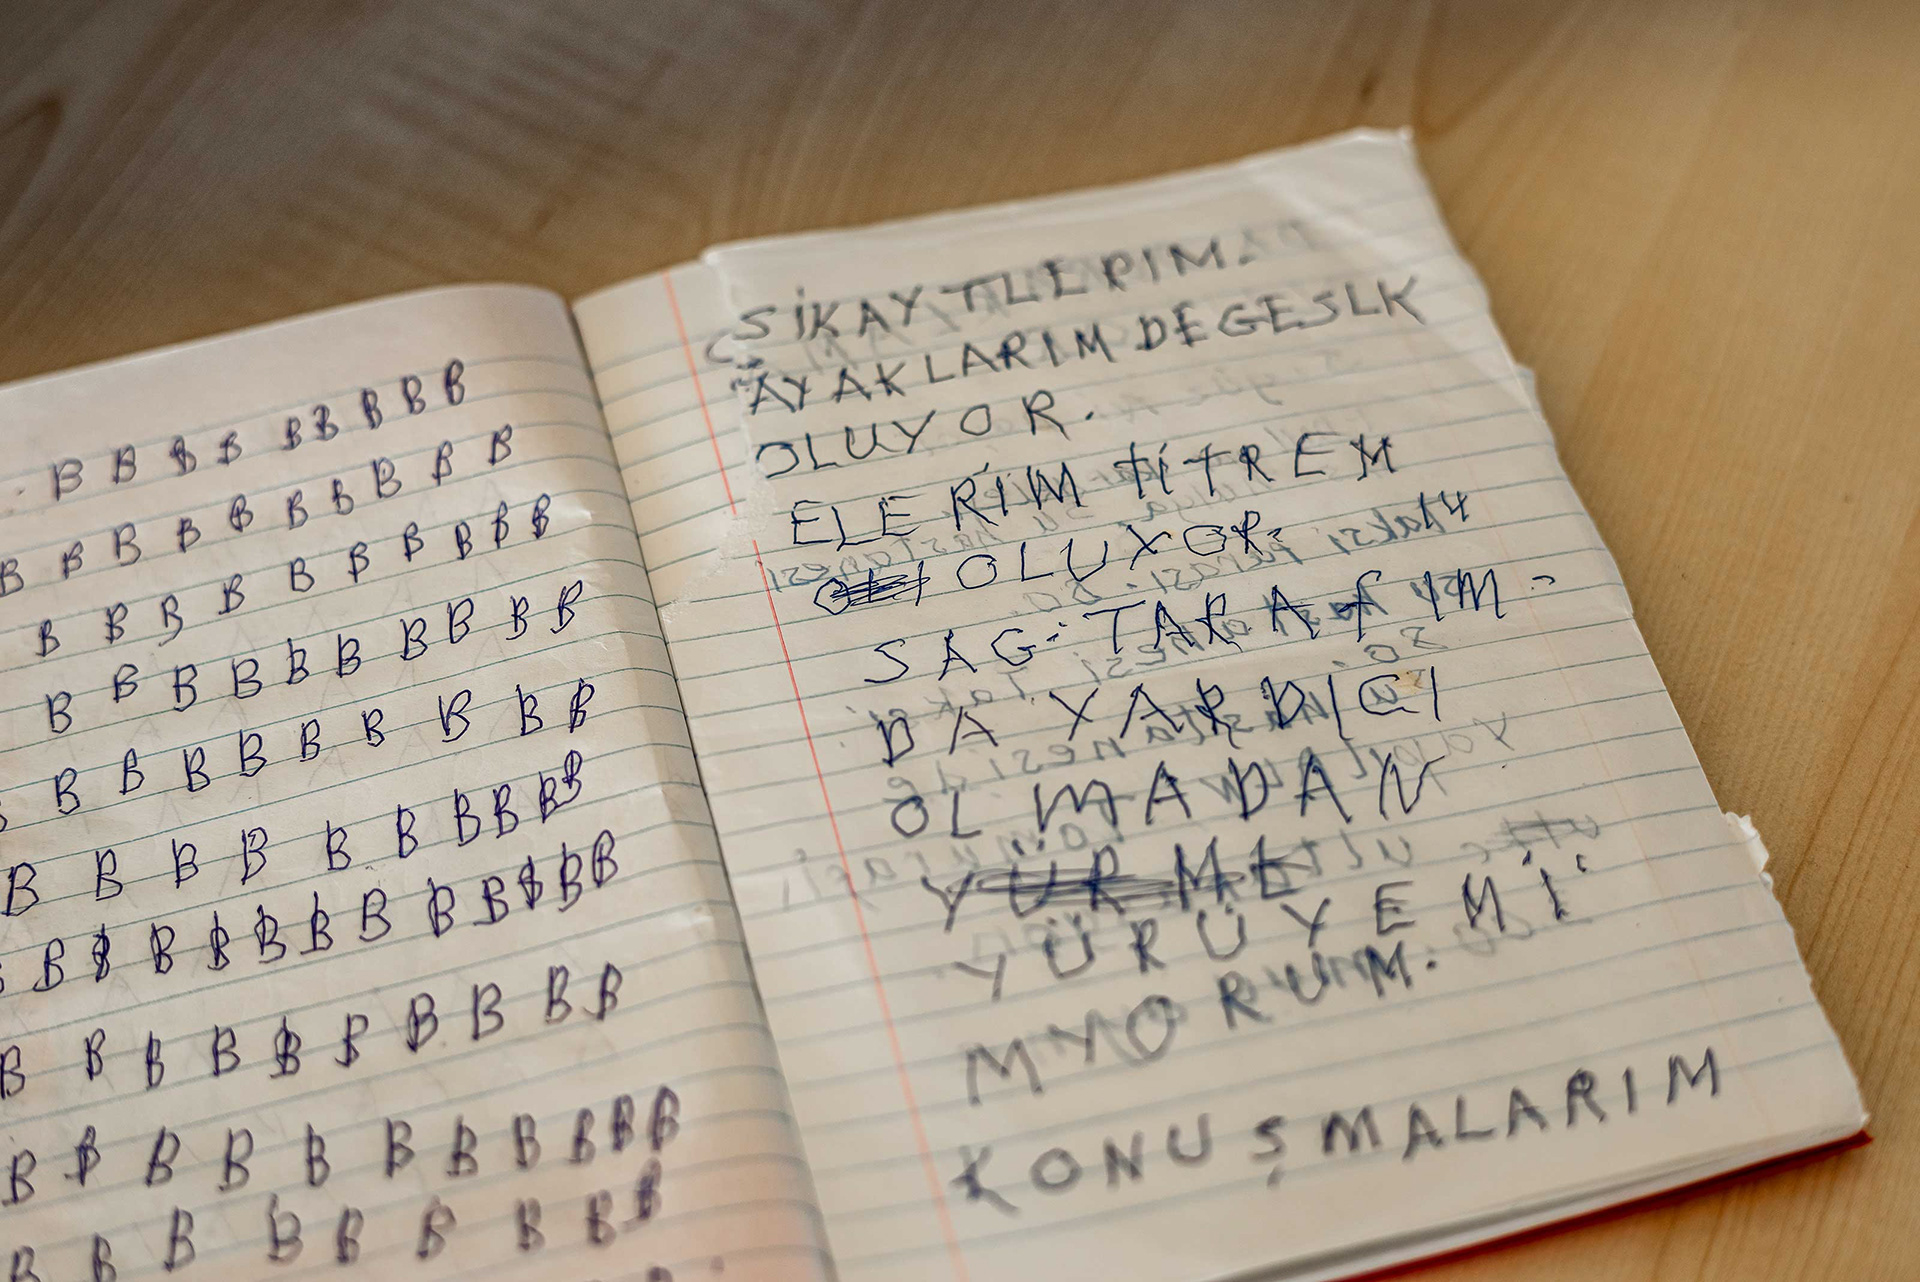 B B B B B B B B B
B B B B B B B B B B
B B B B B B B B B
B B B B B B B B B B
B B B B B B B B B
B B B B B B B B B
B B B B B B B B B B B B
B B B B B B B B B B
B B B B B B B B B B B
B B B B B B B B
SİKAYTLERIM.
AYAKLARIM DEGESLK
OLUYOR.
ELERİM TİTREM
OLUYOR.
SAG. TARAFIM.
DA YARDICI
OLMADAN
YÜRÜYEMİ
MYORUM.
KONUŞMALARIM